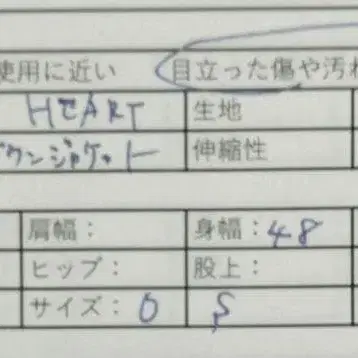 使用に近い 目立った傷や汚れ
HEART 生地
ダウンジャケット 伸縮性
肩幅: 身幅:48
ヒップ: 股上:
サイズ: 0 S